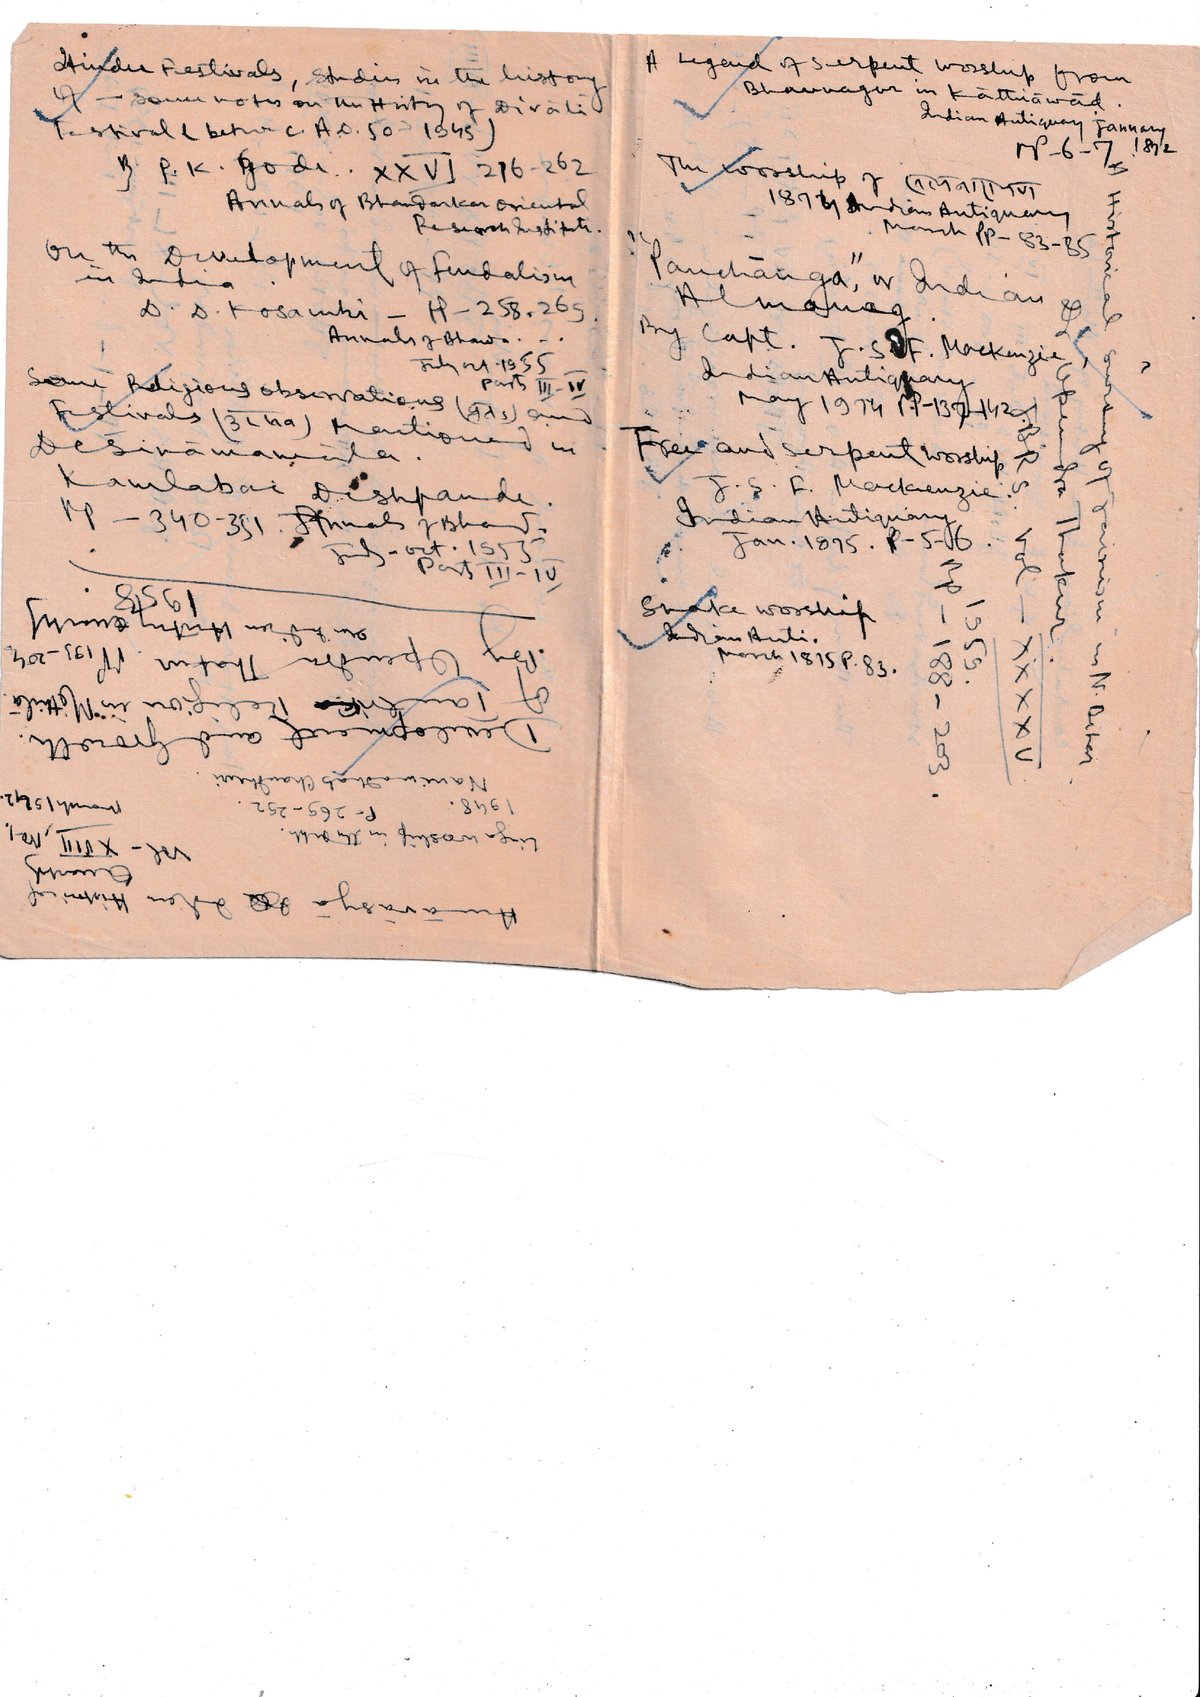 Hindu Festivals, Studies in the history
of — some notes on the History of Divālī
Festival (betw. c. A.D. 50 - 1945)
By P. K. Gode. XXVI 216-262
Annals of Bhandarkar Oriental
Research Institute.
On the Development of feudalism
in India.
D. D. Kosambi — PP - 258-269.
Annals of Bhand. . .
July oct. 1955
Parts III-IV
Some Religious observations (व्रत) and
Festivals (उत्सव) Mentioned in
Deśināmamālā.
Kamlabai Deshpande.
PP - 340-351. Annals of Bhand.
July - oct. 1955
Part III-IV
Amāvāsyā Indian Historical
Quarterly
Vol - XVIII, No. 1,
March 1942.
Linga worship in the
1948. P- 269-292.
Chaudhuri
Development and Growth
of Tantrik Religion in Mithilā
By Upendra Thakur. PP 193-204,
Indian History Quarterly
1958
A Legend of Serpent Worship from
Bhavnagar in Kāthiāwād.
Indian Antiquary January
PP-6-7 1872
The Worship of
1874 Indian Antiquary
March PP- 83-85
"Panchānga", or Indian
Almanac.
By Capt. J. S. F. Mackenzie,
Indian Antiquary
May 1974 PP-137-142
Tree and Serpent Worship
J. S. F. Mackenzie.
Indian Antiquary
Jan. 1875. P-5-6.
Snake worship
Indian Anti.
March 1875 P. 83.
A Historical survey of Jainism in N. Bihar
Dr. Upendra Thakur.
J.B.R.S. Vol — XXXXV
1959.
PP - 188 - 203.